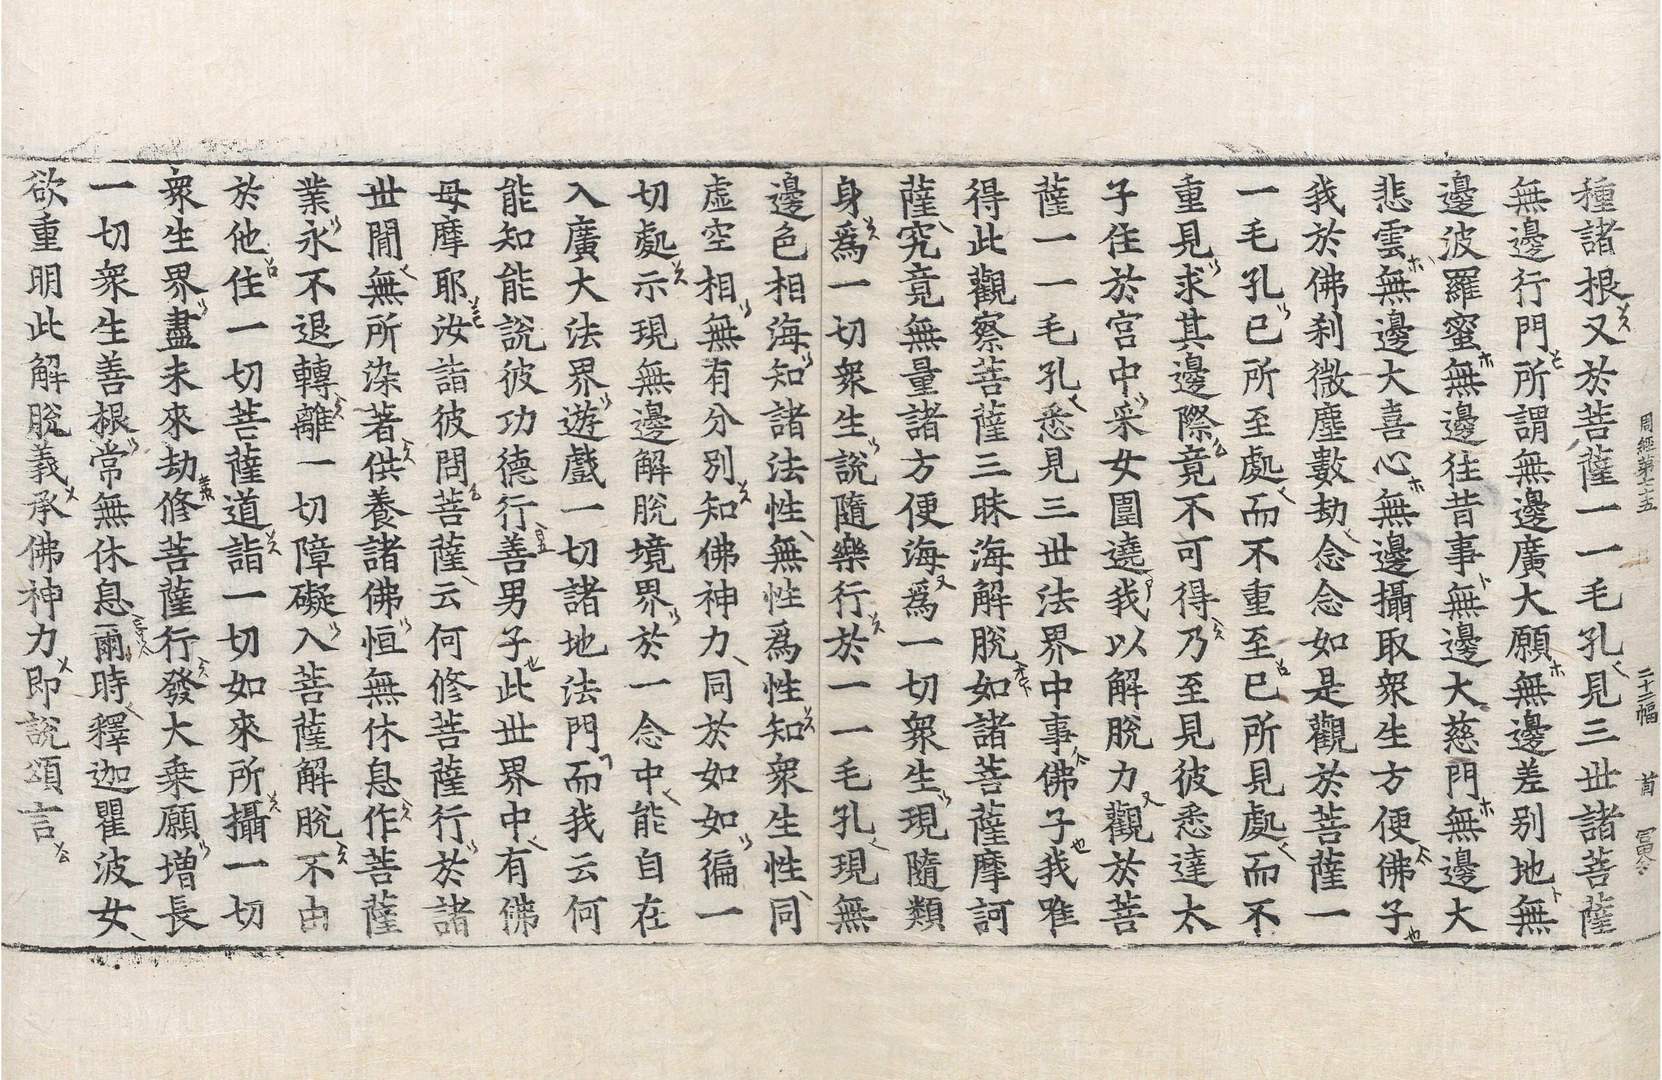 周經第七十五 二十二幅
種諸根又於菩薩一一毛孔見三世諸菩薩
無邊行門所謂無邊廣大願無邊差別地無
邊波羅蜜無邊往昔事無邊大慈門無邊大
悲雲無邊大喜心無邊攝取衆生方便佛子
我於佛刹微塵數劫念念如是觀於菩薩一
一毛孔已所至處而不重至已所見處而不
重見求其邊際竟不可得乃至見彼悉達太
子住於宮中采女圍遶我以解脫力觀於菩
薩一一毛孔悉見三世法界中事佛子我唯
得此觀察菩薩三昧海解脫如諸菩薩摩訶
薩究竟無量諸方便海爲一切衆生現隨類
身爲一切衆生說隨樂行於一一毛孔現無
邊色相海知諸法性無性爲性知衆生性同
虛空相無有分別知佛神力同於如如徧一
切處示現無邊解脫境界於一念中能自在
入廣大法界遊戲一切諸地法門而我云何
能知能說彼功德行善男子此世界中有佛
母摩耶汝詣彼問菩薩云何修菩薩行於諸
世閒無所染著供養諸佛恒無休息作菩薩
業永不退轉離一切障礙入菩薩解脫不由
於他住一切菩薩道詣一切如來所攝一切
衆生界盡未來劫修菩薩行發大乘願增長
一切衆生善根常無休息爾時釋迦瞿波女
欲重明此解脫義承佛神力即說頌言